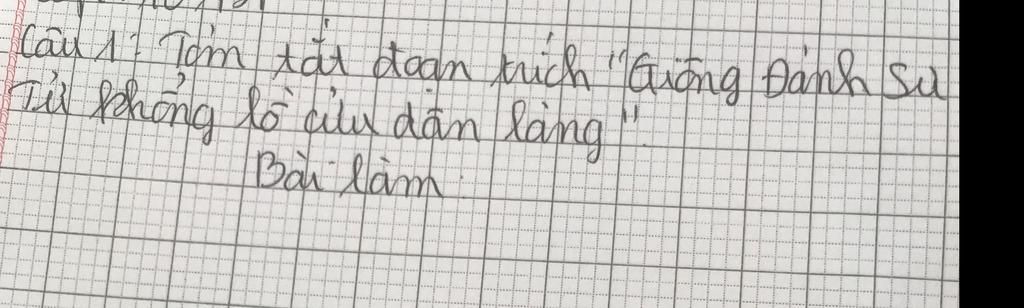 Câu 1: Tóm tắt đoạn trích "Giông Đánh Sư
Tử khổng lồ cứu dân làng".
Bài làm